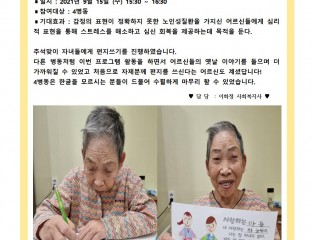 ▪일시 : 2021년 9월 15일 (수) 15:30 ~ 16:30
▪참여대상 : 4병동
▪기대효과 : 감정의 표현이 정확하지 못한 노인성질환을 가지신 어르신들에게 심리
적 표현을 통해 스트레스를 해소하고 심신 회복을 제공하는데 목적을 둔다.
추석맞이 자녀들에게 편지쓰기를 진행하였습니다.
다른 병동처럼 이번 프로그램 활동을 하면서 어르신들의 옛날 이야기를 들으며 더
가까워질 수 있었고 처음으로 자제분께 편지를 쓰신다는 어르신도 계셨답니다!
4병동은 한글을 모르시는 분들이 드물어 수월하게 마무리 할 수 있었습니다.
♥ 담 당 : 이화정 사회복지사 ♥
사랑하는 아들